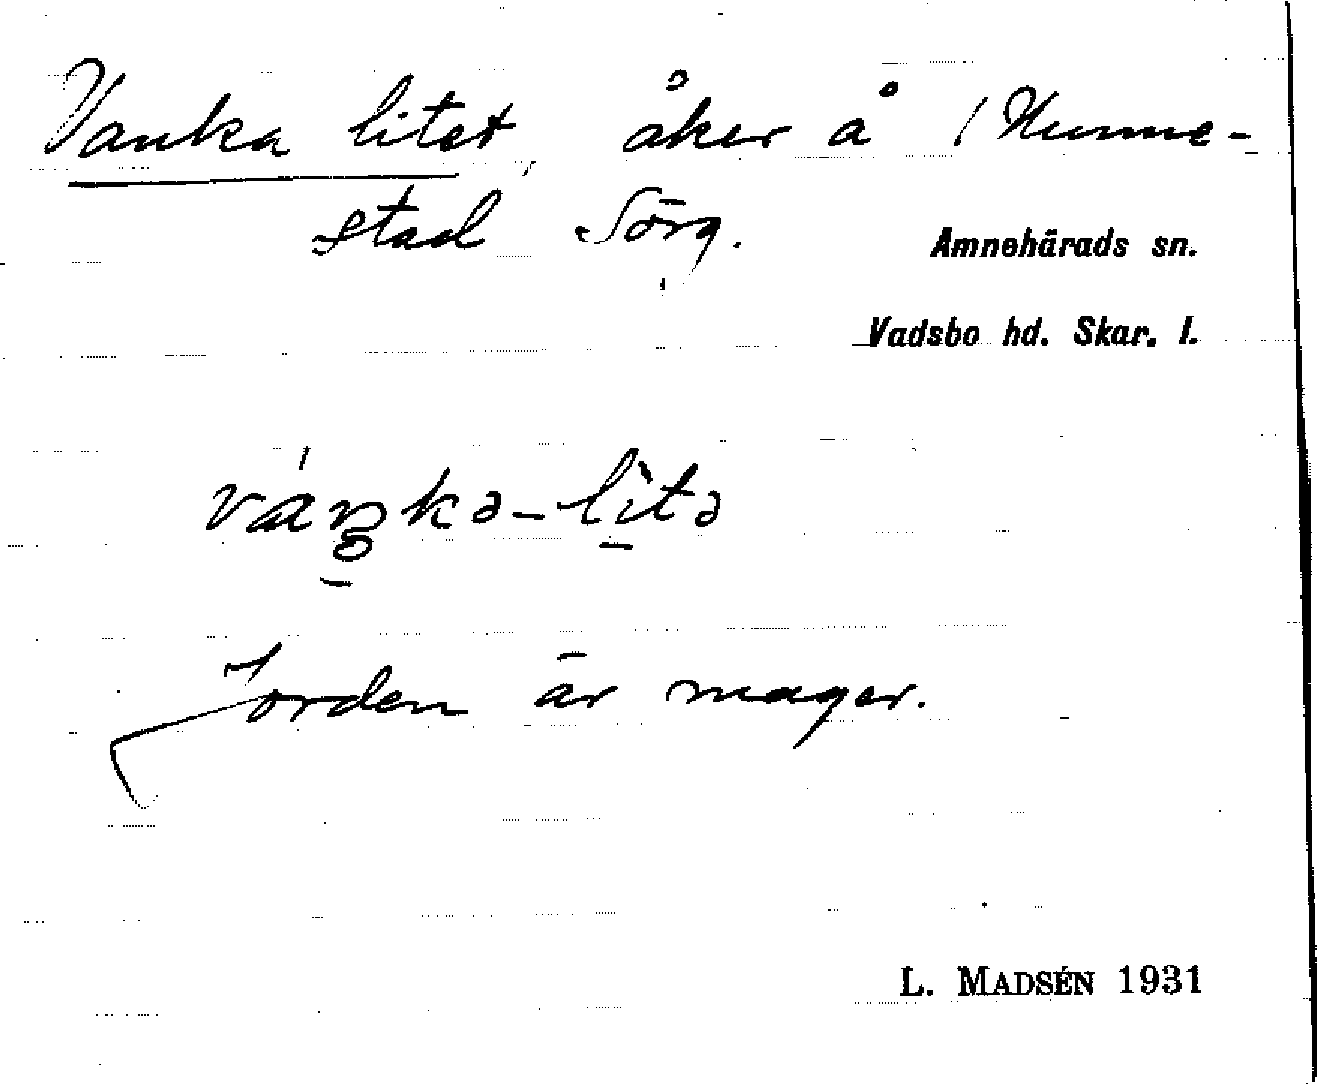 Vanka litet, åker å / Hunne-
stad Sörg.
Amnehärads sn.
Vadsbo hd. Skar. l.
Jorden är mager.
L. MADSÉN 1931